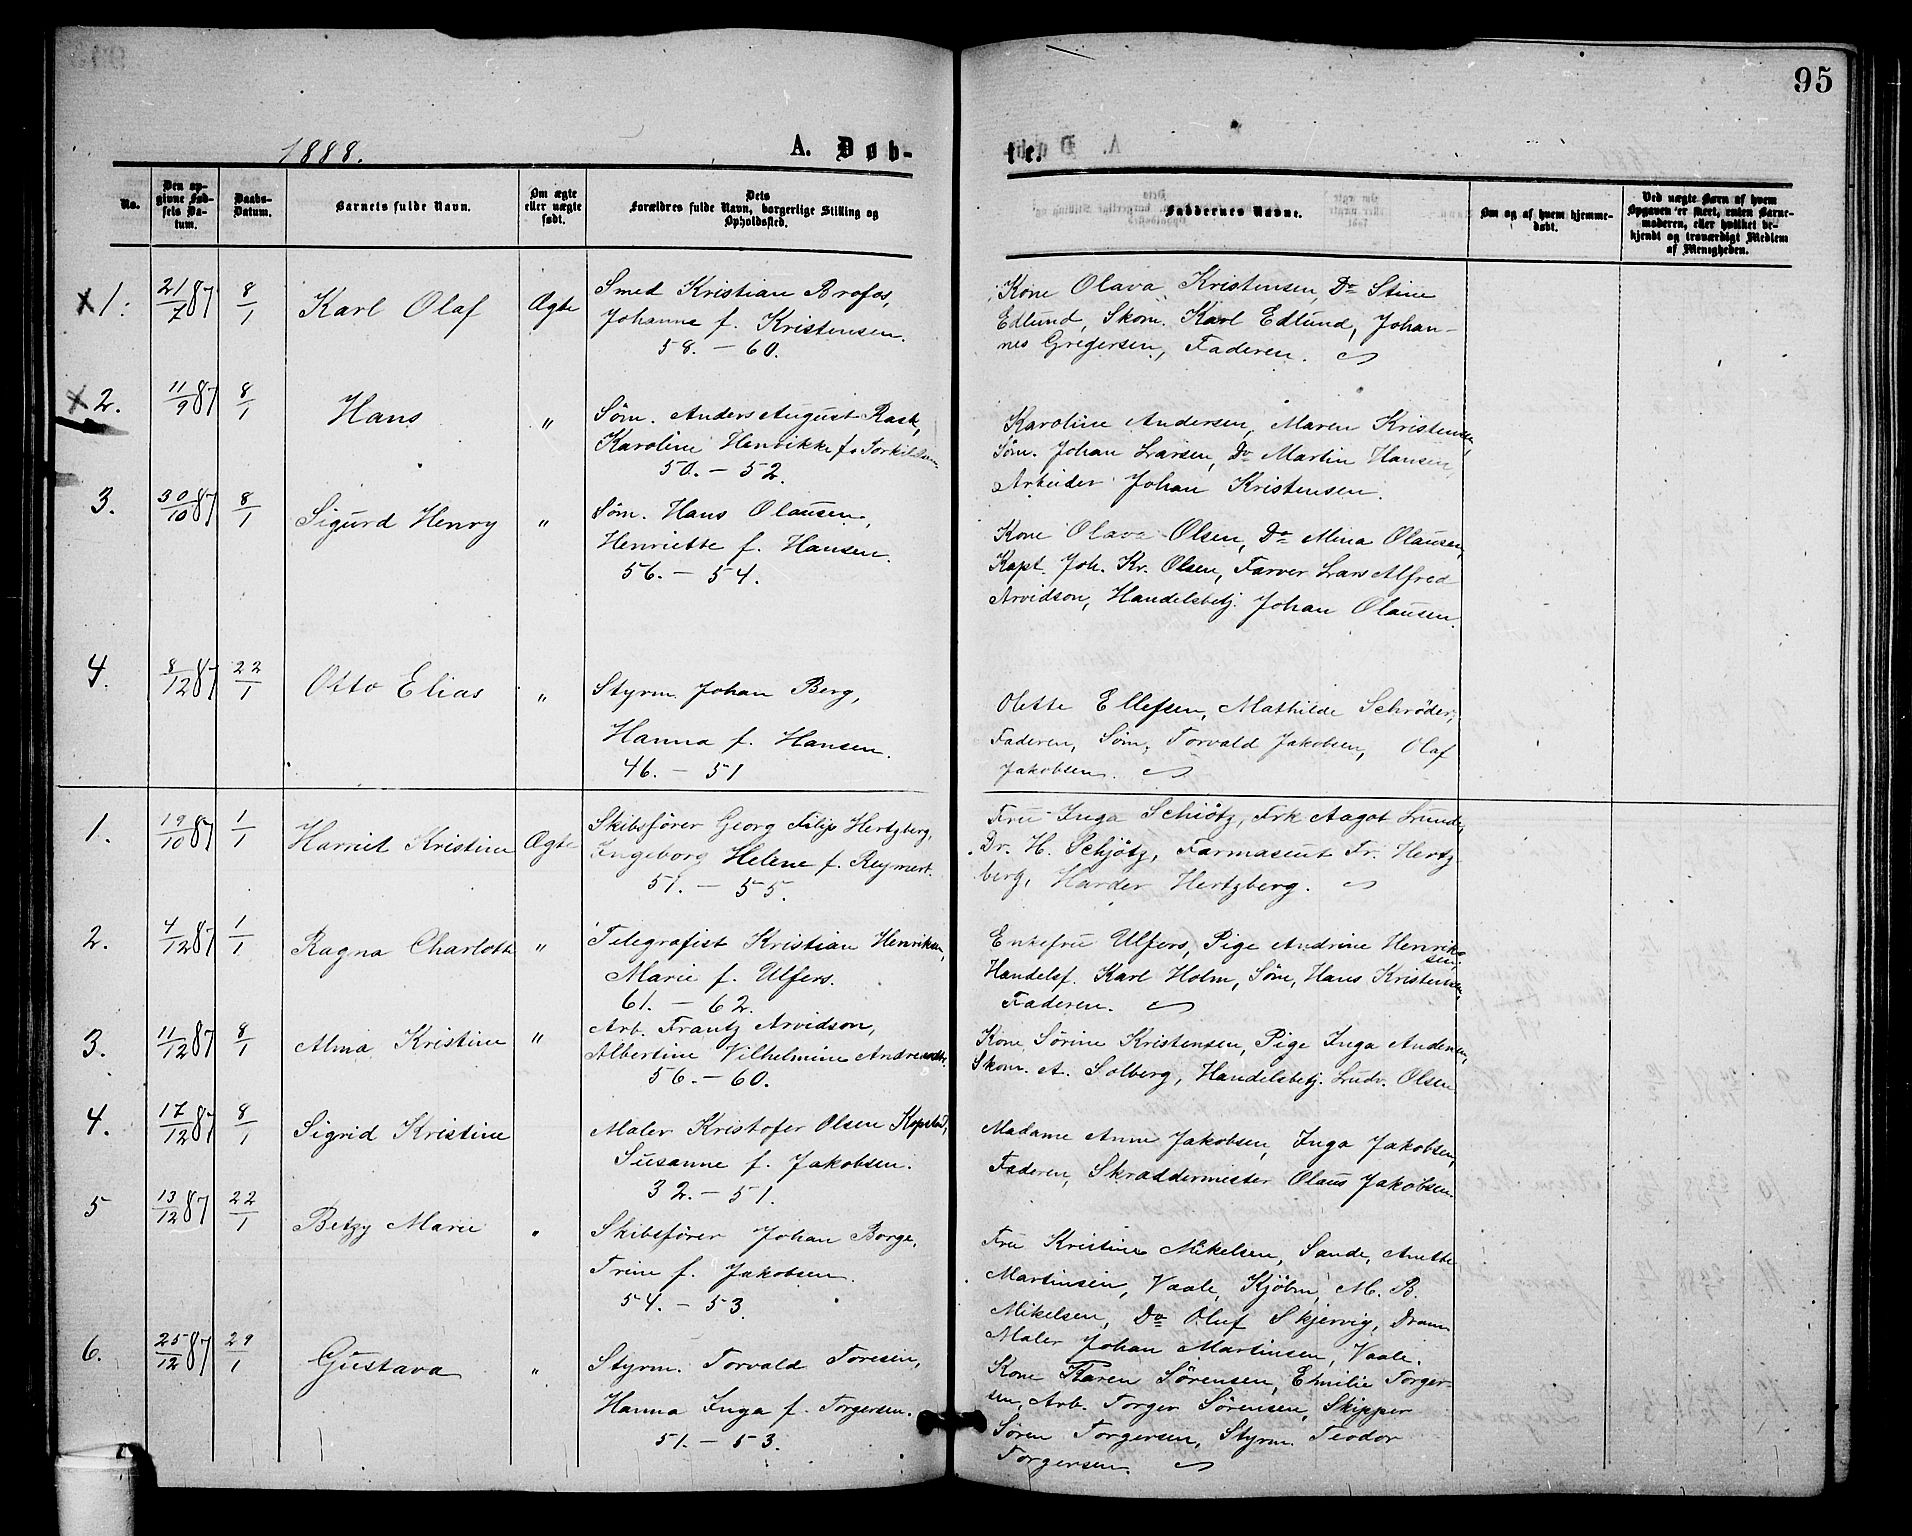 95
1888.
A. Døb-
te.
No.
Den op-
givne Fød-
sels Da-
tum.
Daabs-
Datum.
Barnets fulde Navn.
Om ægte
eller uægte
født.
Dets
Forældres fulde Navn, borgerlige Stilling og
Opholdssted.
Faddernes Navne.
Om og af hvem hjemme-
døbt.
Ved uægte Børn af hvem
Opgaven er skeet, enten Barne-
moderen, eller hvilket be-
kjendt og troværdigt Medlem
af Menigheden.
x1. 21/7 87 8/1 Karl Olaf Ægte
Smed Kristian Brofos,
Johanne f. Kristensen.
58. - 60.
Kone Olava Kristensen, Do Stine
Edlund, Skom. Karl Edlund, Johan-
nes Gregersen, Faderen.
x2. 11/9 87 8/1 Hans "
Søm. Anders August Rask,
Karoline Henrikke f.
50. - 52.
Karoline Andersen, Maren Kristensen,
Søm. Johan Larsen, Do Martin Hansen,
Arbeider Johan Kristensen.
3. 30/10 87 8/1 Sigurd Henry "
Søm. Hans Olausen,
Henriette f. Hansen.
56. - 54.
Kone Olava Olsen, Do Mina Olausen,
Kapt. Joh. Kr. Olsen, Farver Lars Alfred
Arvidson, Handelsbetj. Johan Olausen.
4. 8/12 87 22/1 Otto Elias "
Styrm. Johan Berg,
Hanna f. Hansen.
46. - 51
Olette Ellefsen, Mathilde Schrøder,
Faderen, Søm. Torvald Jakobsen, Olaf
Jakobsen.
1. 19/10 87 1/1 Harriet Kristine Ægte
Skibsfører Georg Filip Hertzberg,
Ingeborg Helene f. Reymert.
51. - 55.
Fru Inga Schiøtz, Frk Aagot Lunde,
Dr. H. Schjøtz, Farmaseut Fr. Hertz
berg, Harder Hertzberg.
2. 4/12 87 1/1 Ragna Charlotte "
Telegrafist Kristian Henriksen,
Marie f. Ulfers.
61. - 62.
Enkefru Ulfers, Pige Andrine Henrik-
sen,
Handelsf. Karl Holm, Søm. Hans Kristensen,
Faderen.
3. 11/12 87 8/1 Alma Kristine "
Arb. Frantz Arvidson,
Albertine Vilhelmine
56. - 60.
Kone Sørine Kristensen, Pige Inga Andersen,
Skom. A. Solberg, Handelsbetj. Ludv. Olsen
4. 17/12 87 8/1 Sigrid Kristine
Maler Kristofer Olsen Kopstad,
Susanne f. Jakobsen.
32. - 51.
Madame Anne Jakobsen, Inga Jakobsen,
Faderen, Skraddermester Olaus Jakobsen.
5 13/12 87 22/1 Betzy Marie "
Skibsfører Johan Borge,
Trine f. Jakobsen.
54. - 53.
Fru Kristine Mikelsen, Sande, Anette
Martinsen, Vaale, Kjøbm. M. B.
Mikelsen, Do Oluf Skjervig, Dram.
Maler Johan Martinsen, Vaale.
6. 25/12 87 29/1 Gustava "
Styrm. Torvald Toresen,
Hanna Inga f. Torgersen.
51. - 53.
Kone Karen Sørensen, Emilie Torger-
sen, Arb. Torger Sørensen, Skipper
Søren Torgersen, Styrm. Teodor
Torgersen.